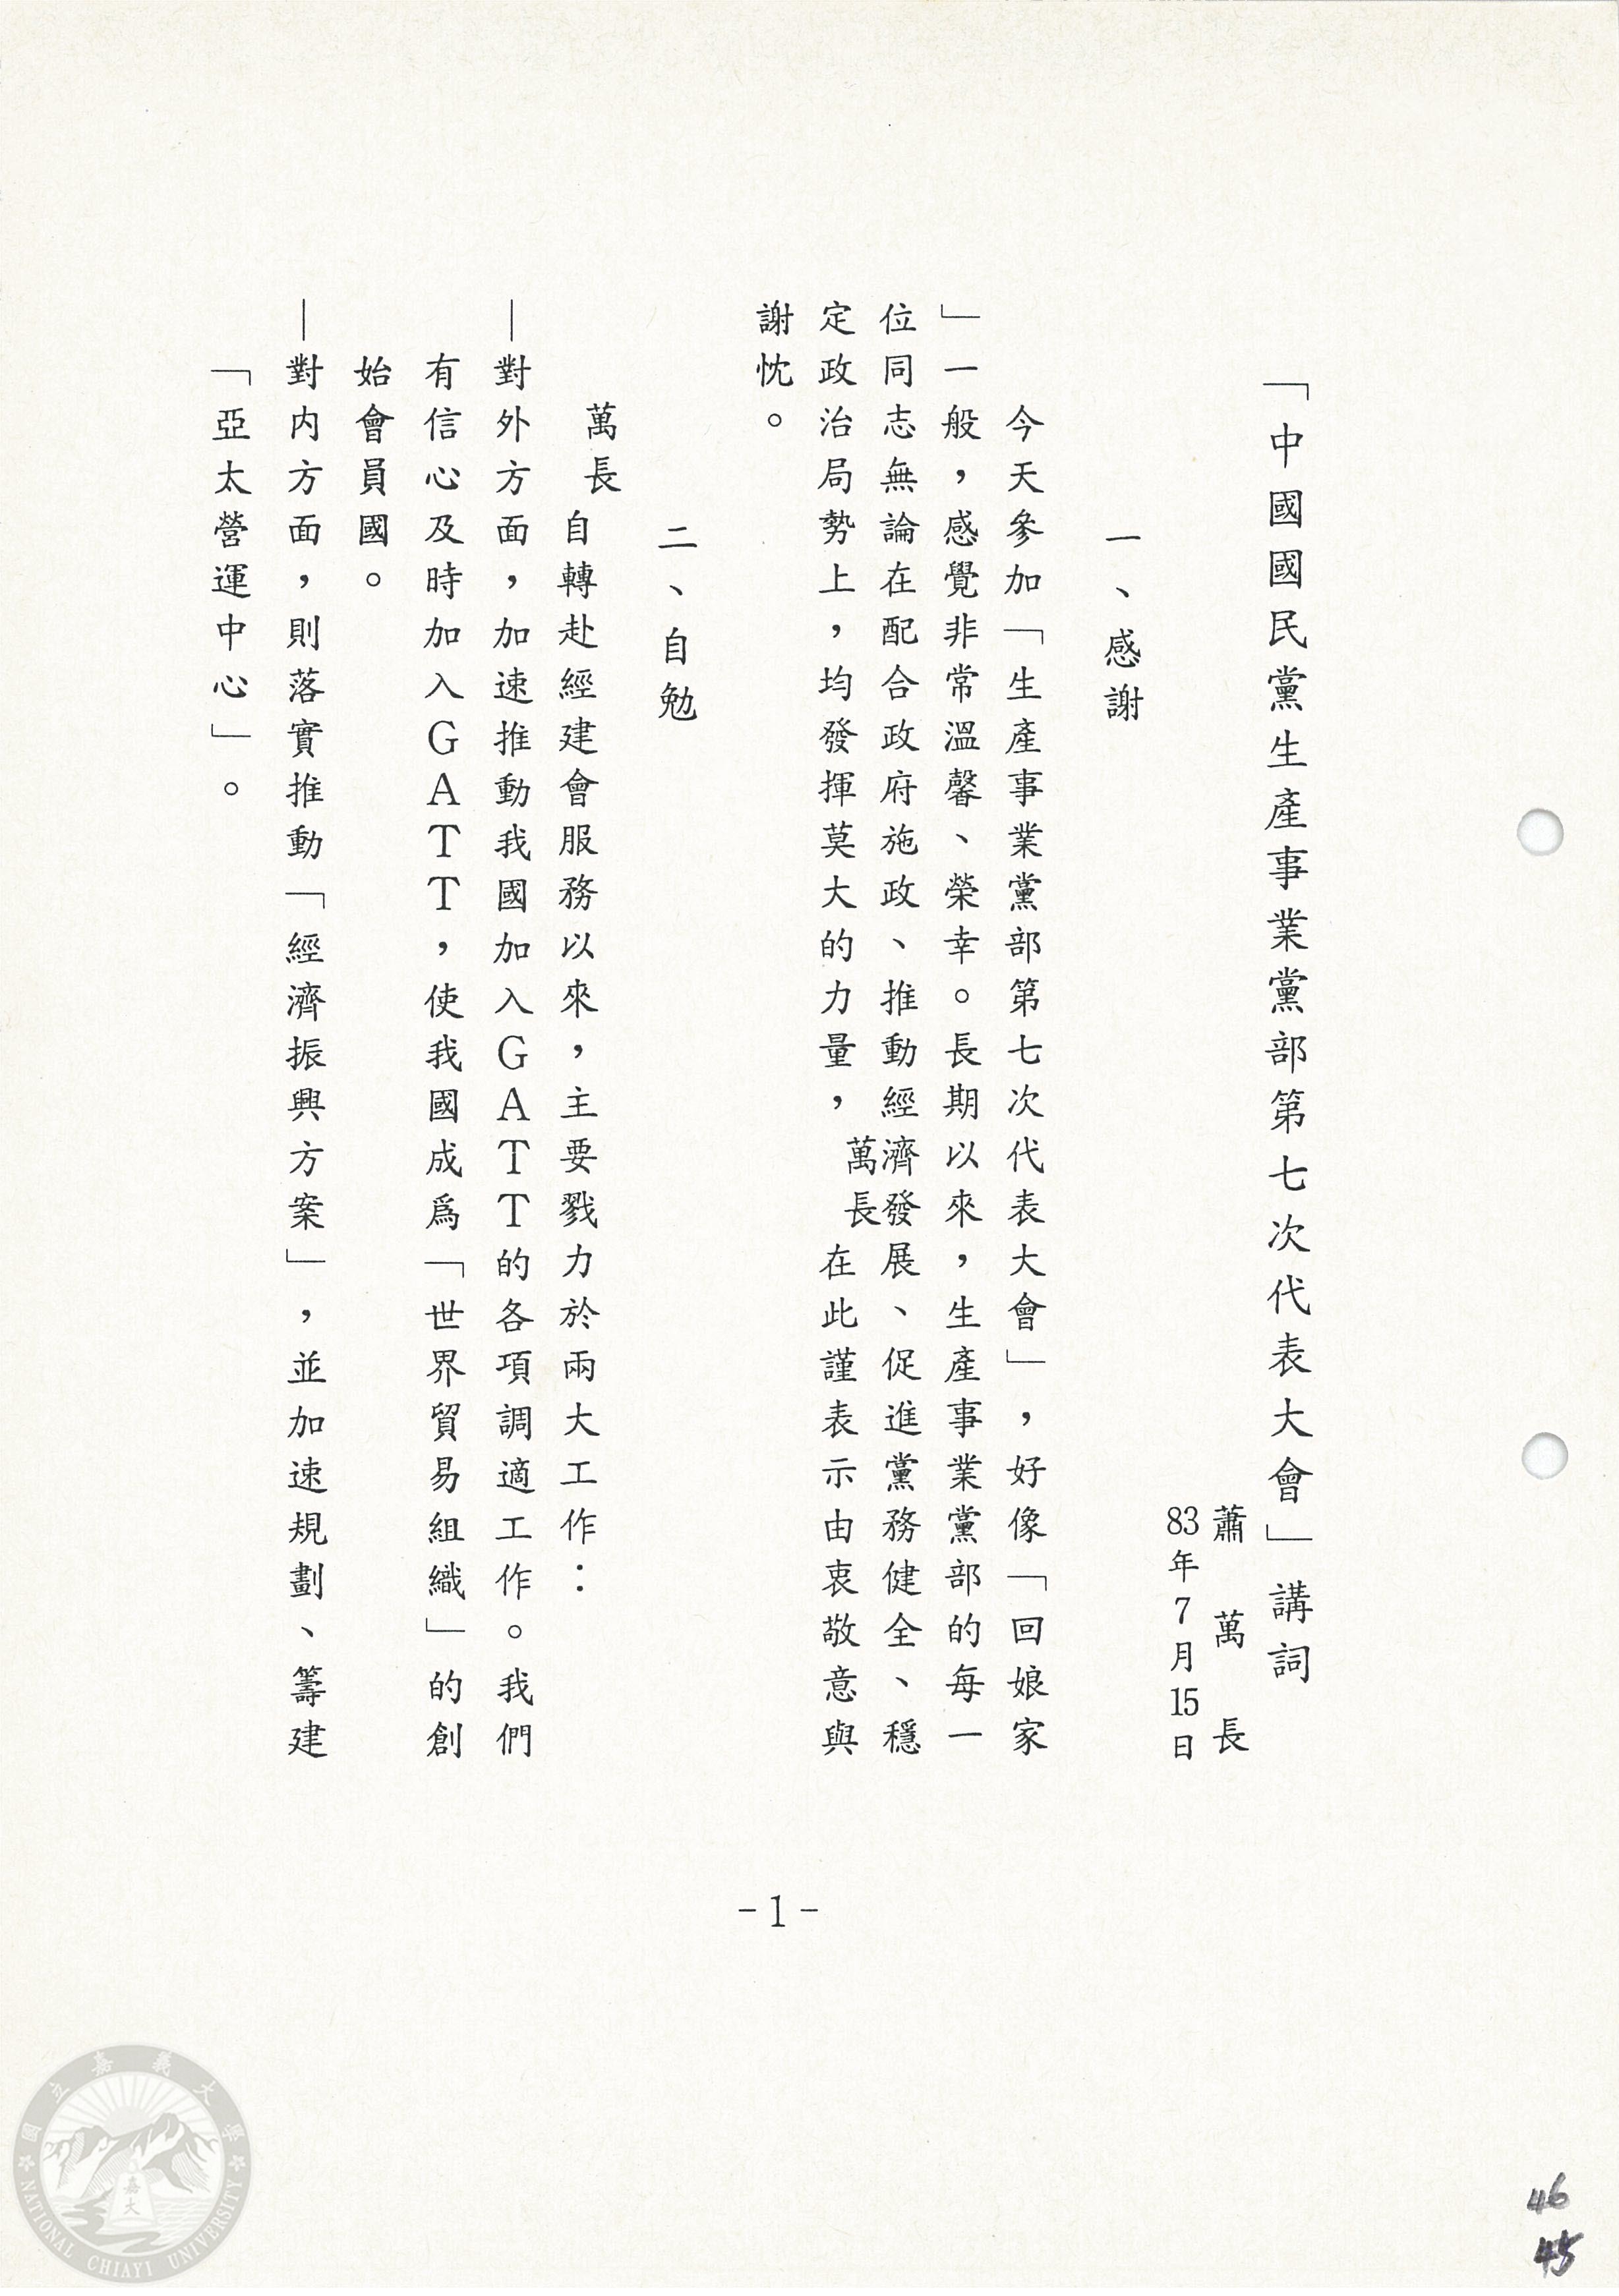 「中國國民黨生產事業黨部第七次代表大會」講詞
蕭萬長
83年7月15日
一、感謝
今天參加「生產事業黨部第七次代表大會」，好像「回娘家
」一般，感覺非常溫馨、榮幸。長期以來，生產事業黨部的每一
位同志無論在配合政府施政、推動經濟發展、促進黨務健全、穩
定政治局勢上，均發揮莫大的力量，萬長在此謹表示由衷敬意與
謝忱。
二、自勉
萬長自轉赴經建會服務以來，主要戮力於兩大工作：
—對外方面，加速推動我國加入GATT的各項調適工作。我們
有信心及時加入GATT，使我國成爲「世界貿易組織」的創
始會員國。
—對内方面，則落實推動「經濟振興方案」，並加速規劃、籌建
「亞太營運中心」。
-1-
國立嘉義大學
嘉大
NATIONAL CHIAYI UNIVERSITY
46
45